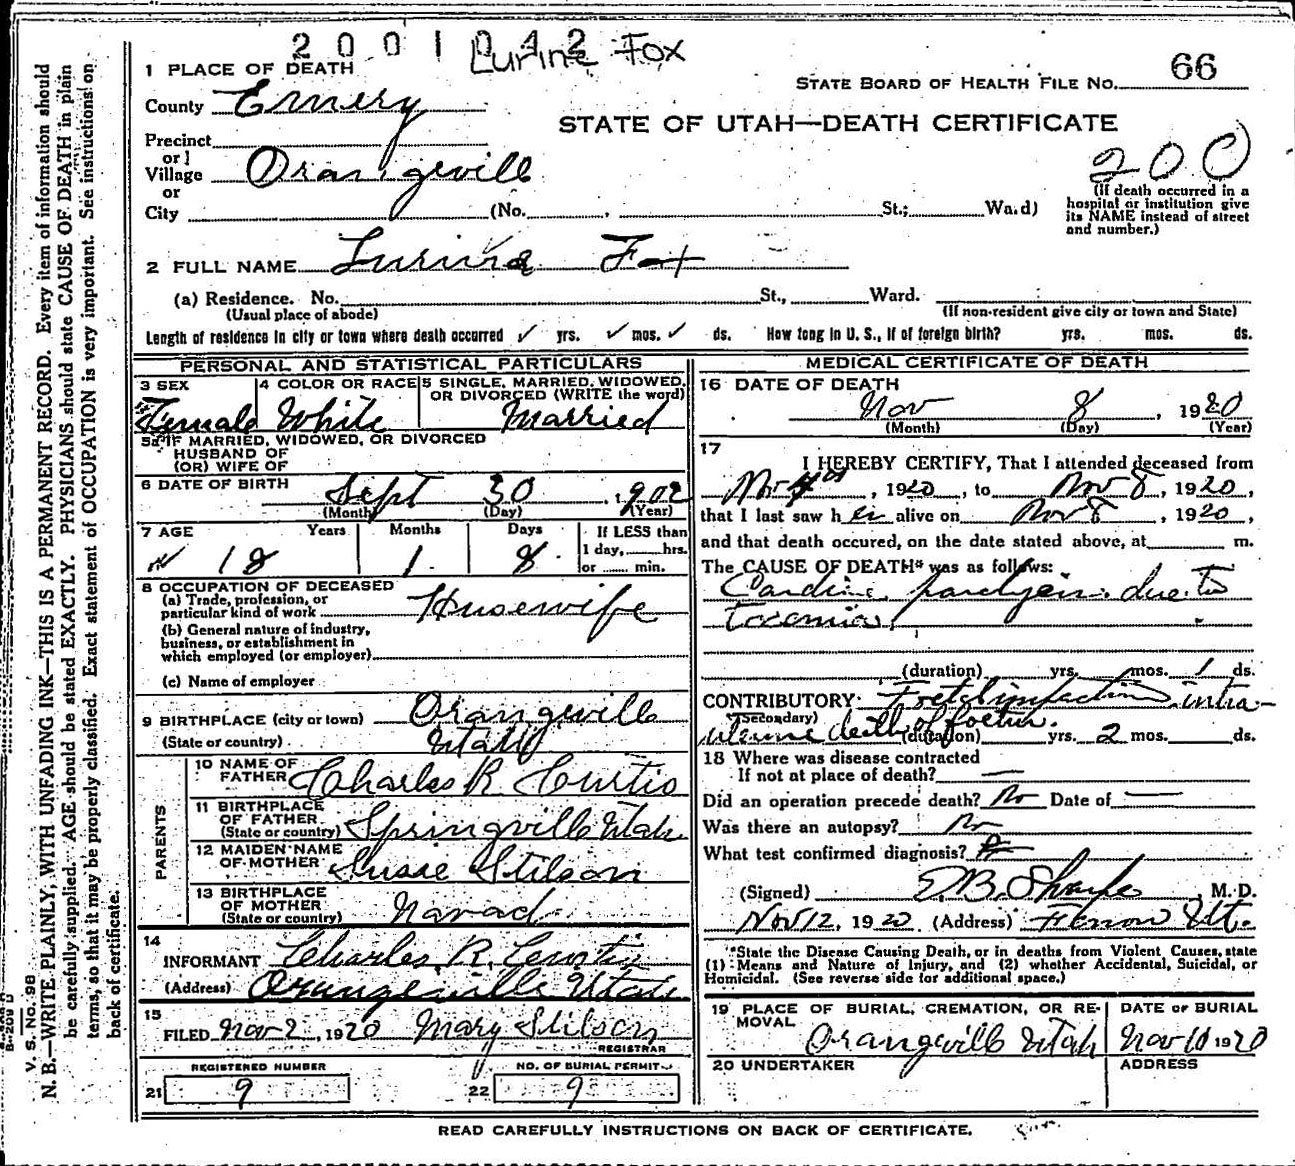 2001042 Lurine Fox
1 PLACE OF DEATH
STATE BOARD OF HEALTH FILE NO. 66
County Emery
STATE OF UTAH—DEATH CERTIFICATE
Precinct
or
Village Orangeville
200
or
City (No. , St.; Ward)
(If death occurred in a hospital or institution give its NAME instead of street and number.)
2 FULL NAME Lurina Fox
(a) Residence. No. St., Ward.
(Usual place of abode) (If non-resident give city or town and State)
Length of residence in city or town where death occurred ✓ yrs. ✓ mos. ✓ ds. How long in U. S., if of foreign birth? yrs. mos. ds.
PERSONAL AND STATISTICAL PARTICULARS
3 SEX Female
4 COLOR OR RACE White
5 SINGLE, MARRIED, WIDOWED, OR DIVORCED (WRITE the word) Married
5a IF MARRIED, WIDOWED, OR DIVORCED
HUSBAND OF
(OR) WIFE OF
6 DATE OF BIRTH Sept 30, 1902
(Month) (Day) (Year)
7 AGE Years Months Days If LESS than
18 1 8 1 day, hrs.
or min.
8 OCCUPATION OF DECEASED
(a) Trade, profession, or
particular kind of work Housewife
(b) General nature of industry,
business, or establishment in
which employed (or employer)
(c) Name of employer
9 BIRTHPLACE (city or town) Orangeville
(State or country) Utah
PARENTS
10 NAME OF FATHER Charles R Curtis
11 BIRTHPLACE OF FATHER (State or country) Springville Utah
12 MAIDEN NAME OF MOTHER Susie Stilson
13 BIRTHPLACE OF MOTHER (State or country)
14
INFORMANT Charles R. Curtis
(Address) Orangeville Utah
15
FILED Nov 2, 1920 Mary Stilson
REGISTRAR
REGISTERED NUMBER NO. OF BURIAL PERMIT
21 9 22 9
MEDICAL CERTIFICATE OF DEATH
16 DATE OF DEATH
Nov 8, 1920
(Month) (Day) (Year)
17
I HEREBY CERTIFY, That I attended deceased from
Nov , 1920, to Nov 8, 1920,
that I last saw her alive on Nov 8, 1920,
and that death occured, on the date stated above, at m.
The CAUSE OF DEATH* was as follows:
Cardiac paralysis due to
Toxemia
(duration) yrs. mos. 1 ds.
CONTRIBUTORY: Foetal impaction intra-
(Secondary)
uterine death of foetus.
(duration) yrs. 2 mos. ds.
18 Where was disease contracted
If not at place of death? —
Did an operation precede death? No Date of —
Was there an autopsy? No
What test confirmed diagnosis?
(Signed) D.B. Sharpe, M. D.
Nov 12, 1920 (Address) Ferron Ut.
*State the Disease Causing Death, or in deaths from Violent Causes, state
(1) Means and Nature of Injury, and (2) whether Accidental, Suicidal, or
Homicidal. (See reverse side for additional space.)
19 PLACE OF BURIAL, CREMATION, OR REMOVAL DATE OF BURIAL
Orangeville Utah Nov 10 1920
20 UNDERTAKER ADDRESS
READ CAREFULLY INSTRUCTIONS ON BACK OF CERTIFICATE.
V. S. NO. 98
N. B.—WRITE PLAINLY, WITH UNFADING INK—THIS IS A PERMANENT RECORD. Every item of information should
be carefully supplied. AGE should be stated EXACTLY. PHYSICIANS should state CAUSE OF DEATH in plain
terms, so that it may be properly classified. Exact statement of OCCUPATION is very important. See instructions on
back of certificate.